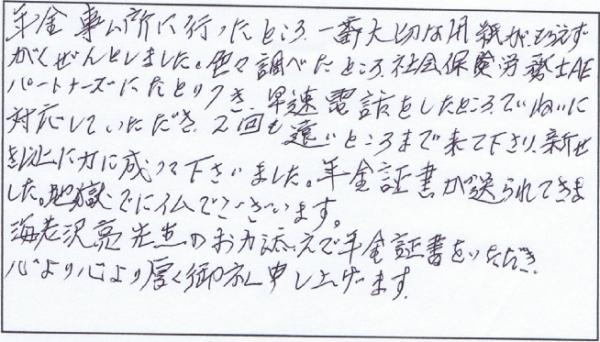 年金事ム所に行ったところ、一番大切な用紙がもらえず
がくぜんとしました。色々調べたところ、社会保険労務士AE
パートナーズにたどりつき、早速電話をしたところ、ていねいに
対応していただき、2回も遠いところまで来て下さり、新せ
き以上に力に成って下さいました。年金証書が送られてきま
した。地獄でに仏でございます。
海老沢亮先生のお力添えで年金証書をいただき、
心より心より厚く御礼申し上げます。